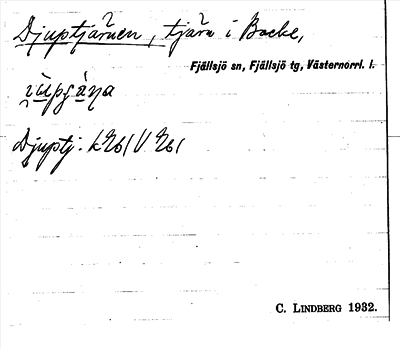 Djuptjärnen, tjärn i Backe,
Fjällsjö sn, Fjällsjö tg, Västernorrl. l.
Djuptj:
C. LINDBERG 1932.